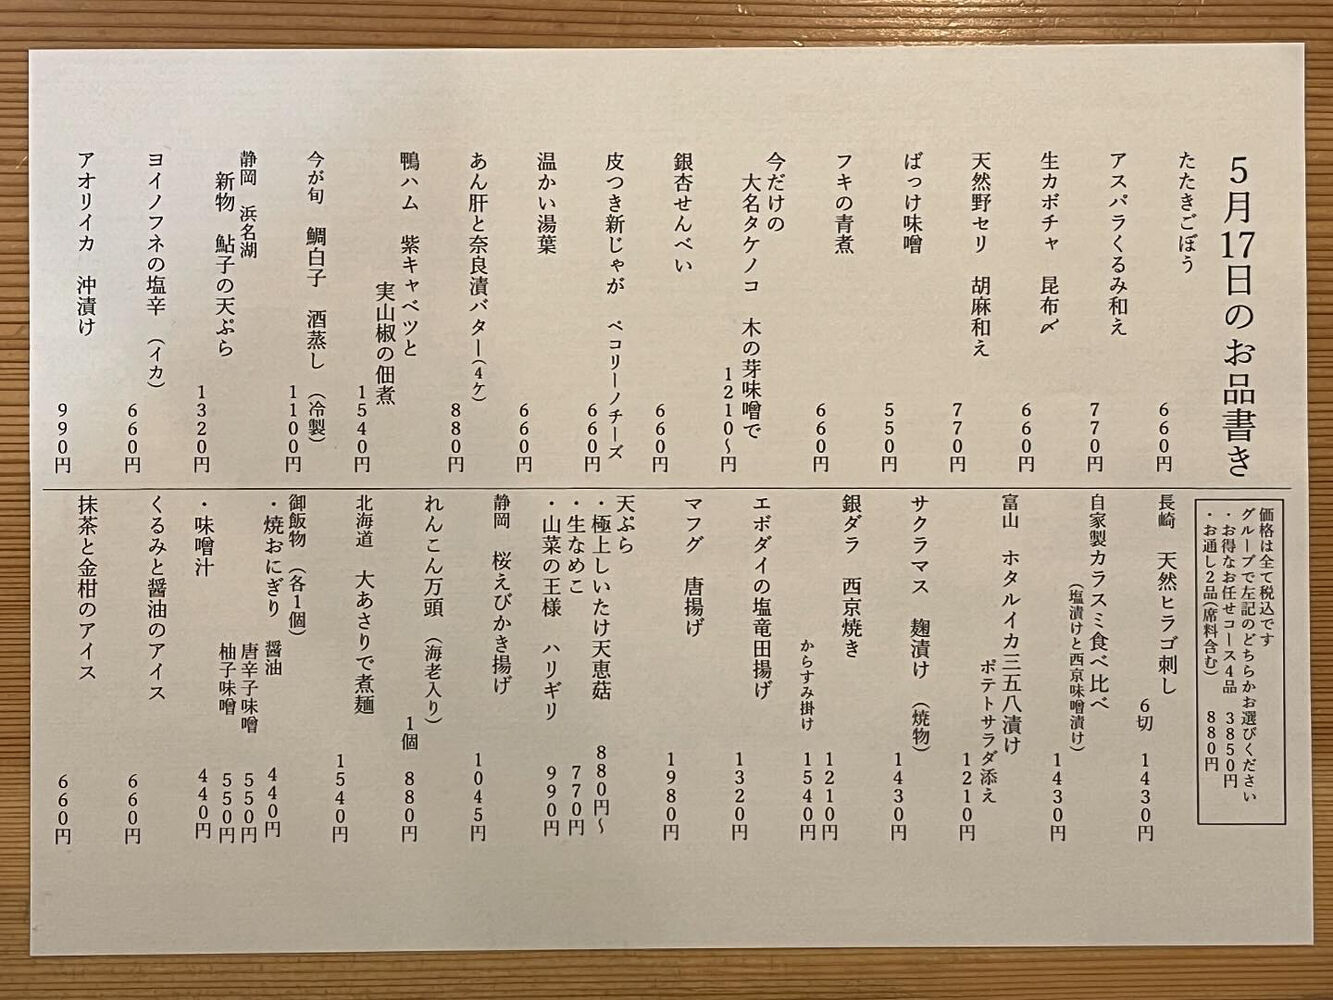 5月17日のお品書き
たたきごぼう
660円
アスパラくるみ和え
770円
生カボチャ 昆布〆
660円
天然野セリ 胡麻和え
770円
ばっけ味噌
550円
フキの青煮
660円
今だけの
大名タケノコ 木の芽味噌で
1210~円
銀杏せんべい
660円
皮つき新じゃが ペコリーノチーズ
660円
温かい湯葉
660円
あん肝と奈良漬バター(4ケ)
880円
鴨ハム 紫キャベツと
実山椒の佃煮
1540円
今が旬 鯛白子 酒蒸し (冷製)
1100円
静岡 浜名湖
新物 鮎子の天ぷら
1320円
ヨイノフネの塩辛 (イカ)
660円
アオリイカ 沖漬け
990円
価格は全て税込です
グループで左記のどちらかお選びください
・お得なお任せコース4品 3850円
・お通し2品(席料含む) 880円
長崎 天然ヒラゴ刺し
6切 1430円
自家製カラスミ食べ比べ
(塩漬けと西京味噌漬け)
1430円
富山 ホタルイカ三五八漬け
ポテトサラダ添え
1210円
サクラマス 麹漬け (焼物)
1430円
銀ダラ 西京焼き
1210円
からすみ掛け 1540円
エボダイの塩竜田揚げ
1320円
マフグ 唐揚げ
1980円
天ぷら
・極上しいたけ天恵菇 880円~
・生なめこ 770円
・山菜の王様 ハリギリ 990円
静岡 桜えびかき揚げ
1045円
れんこん万頭 (海老入り)
1個 880円
北海道 大あさりで煮麺
1540円
御飯物 (各1個)
・焼おにぎり 醤油 440円
唐辛子味噌 550円
柚子味噌 550円
・味噌汁 440円
くるみと醤油のアイス
660円
抹茶と金柑のアイス
660円